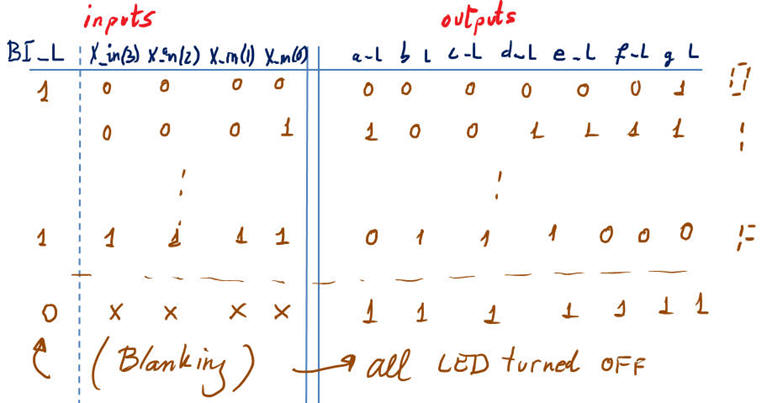 inputs outputs
BI_L X_in(3) X_in(2) X_in(1) X_in(0) a_L b_L c_L d_L e_L f_L g_L
1 0 0 0 0 0 0 0 0 0 0 1 0
0 0 0 1 1 0 0 1 1 1 1 1
1 1 1 1 1 0 1 1 1 0 0 0 F
0 X X X X 1 1 1 1 1 1 1
(Blanking) → all LED turned OFF